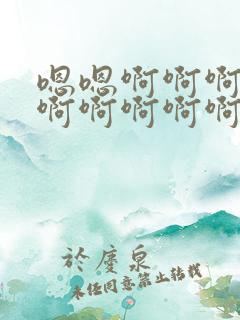 嗯嗯啊啊啊
啊啊啊啊啊
於慶泉
未经同意禁止转载